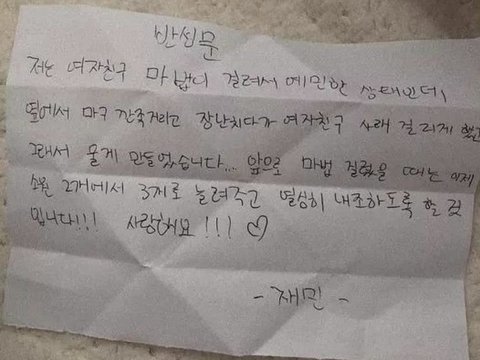 반성문
저는 여자친구 마법이 걸려서 예민한 상태인데,
옆에서 마구 깐죽거리고 장난치다가 여자친구 사래 걸리게 했고
그래서 울게 만들었습니다... 앞으로 마법 걸렸을 때는 이제
소원 2개에서 3개로 늘려주고 열심히 내조하도록 할 것
입니다!!! 사랑해요!!! ♡
- 재민 -